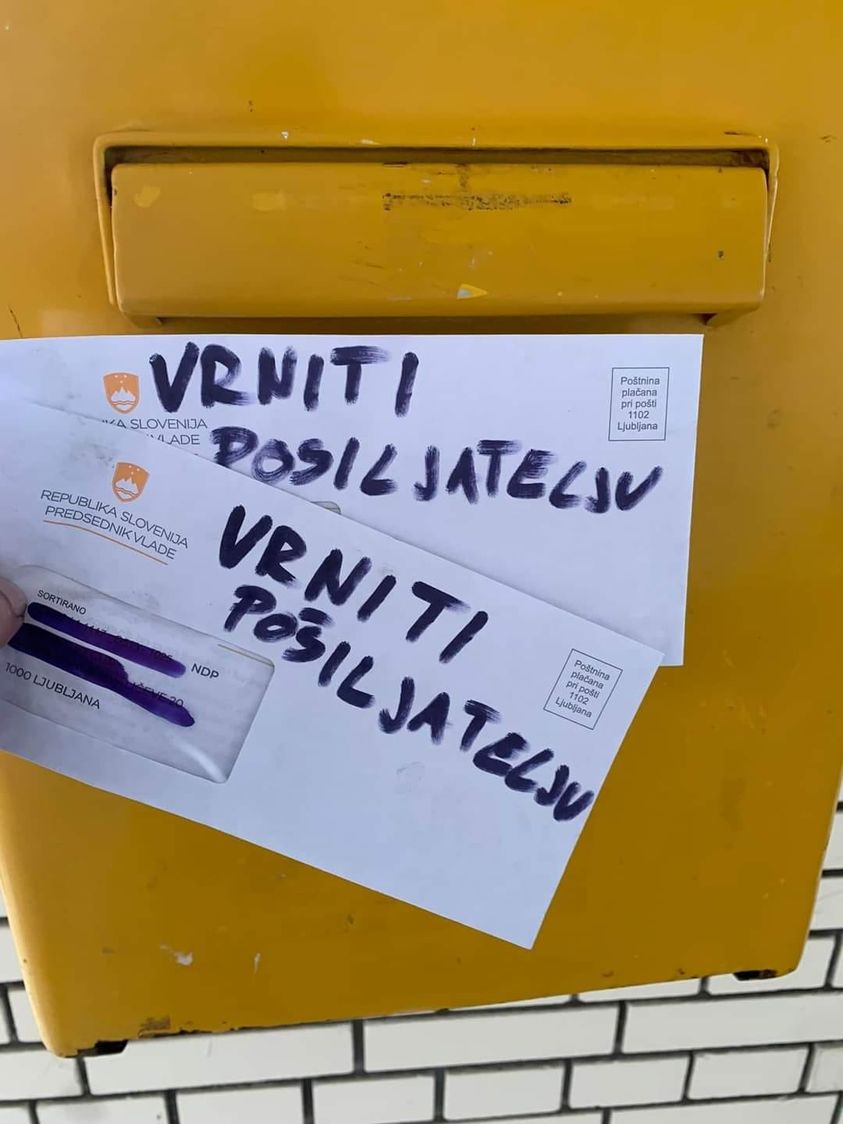 VRNITI
POSILJATELJU
KA SLOVENIJA
VLADE
Poštnina
plačana
pri pošti
1102
Ljubljana
REPUBLIKA SLOVENIJA
PREDSEDNIK VLADE
VRNITI
POŠILJATELJU
SORTIRANO
NDP
1000 LJUBLJANA
Poštnina
plačana
pri pošti
1102
Ljubljana